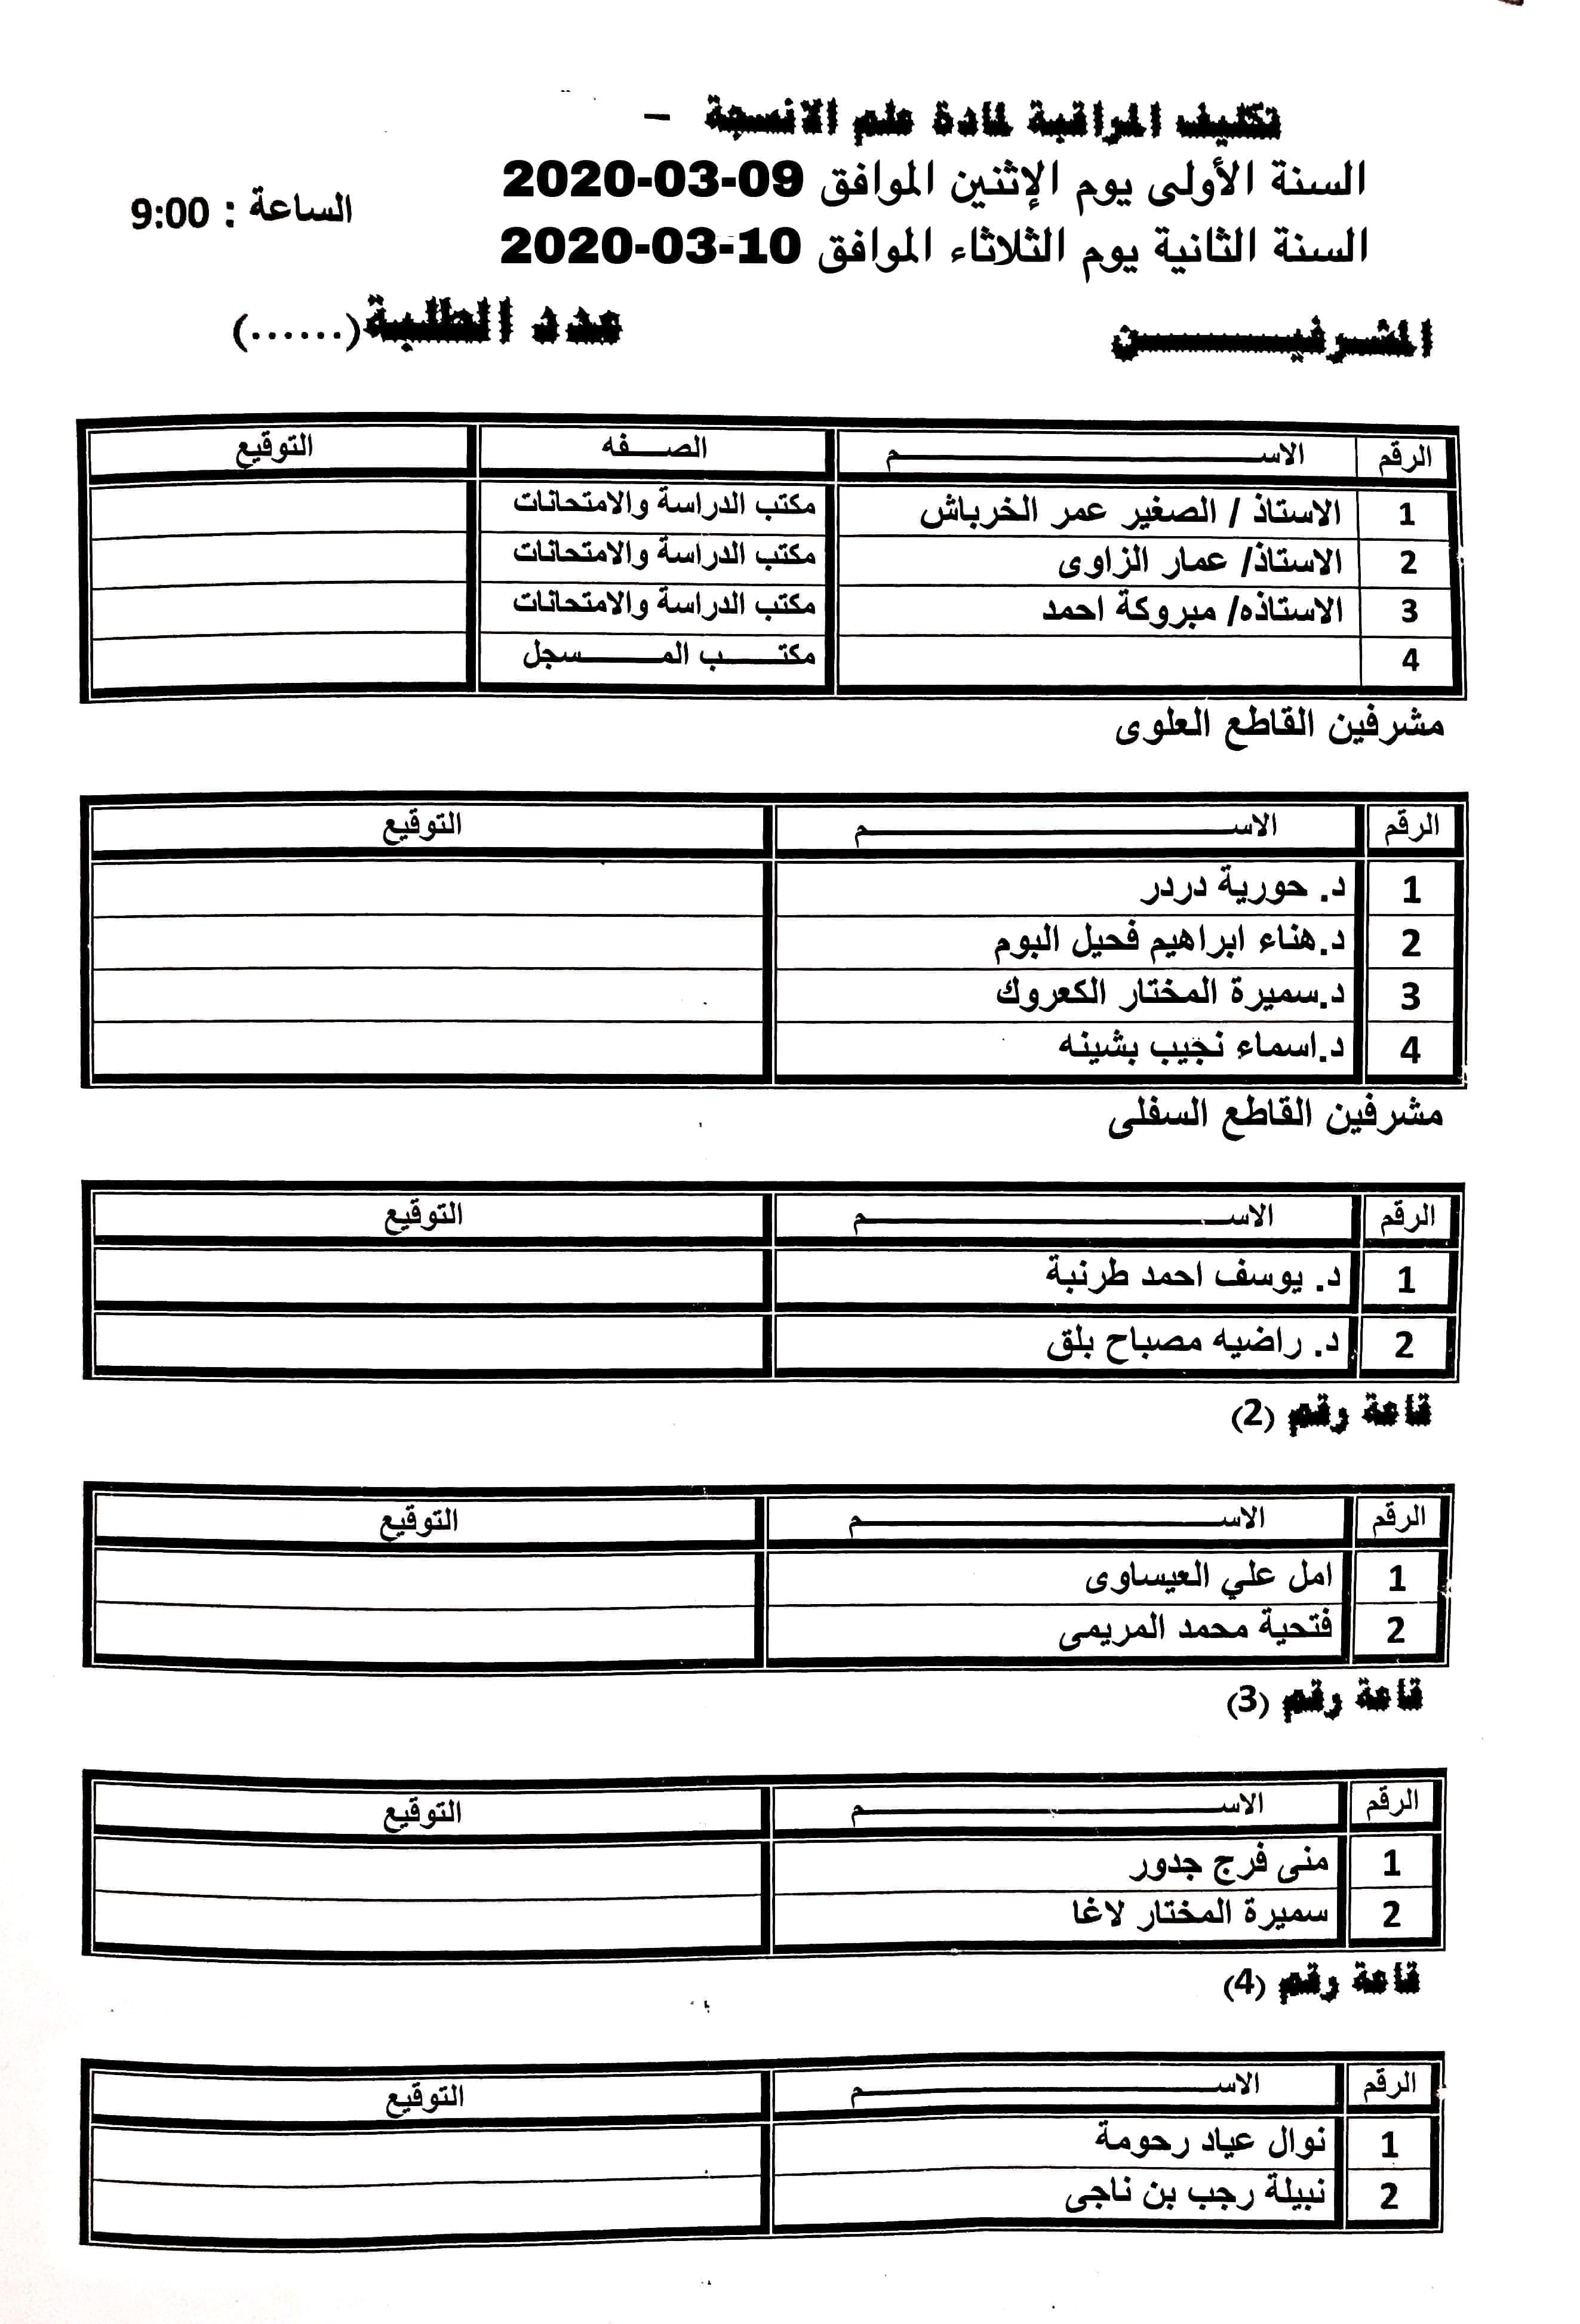 تكليف المراقبة لمادة علم الانسجة –
السنة الأولى يوم الإثنين الموافق 09-03-2020
الساعة : 9:00
السنة الثانية يوم الثلاثاء الموافق 10-03-2020
المشرفيــــــن عدد الطلبة(......)
الرقم الاســـــــــم الصـــفه التوقيع
1 الاستاذ / الصغير عمر الخرباش مكتب الدراسة والامتحانات
2 الاستاذ/ عمار الزاوى مكتب الدراسة والامتحانات
3 الاستاذه/ مبروكة احمد مكتب الدراسة والامتحانات
4 مكتـــب المـــــسجل
مشرفين القاطع العلوى
الرقم الاســـــــــم التوقيع
1 د. حورية دردر
2 د.هناء ابراهيم فحيل البوم
3 د.سميرة المختار الكعروك
4 د.اسماء نجيب بشينه
مشرفين القاطع السفلى
الرقم الاســـــــــم التوقيع
1 د. يوسف احمد طرنبة
2 د. راضيه مصباح بلق
قاعة رقم (2)
الرقم الاســـــــــم التوقيع
1 امل علي العيساوى
2 فتحية محمد المريمى
قاعة رقم (3)
الرقم الاســـــــــم التوقيع
1 منى فرج جدور
2 سميرة المختار لاغا
قاعة رقم (4)
الرقم الاســـــــــم التوقيع
1 نوال عياد رحومة
2 نبيلة رجب بن ناجى